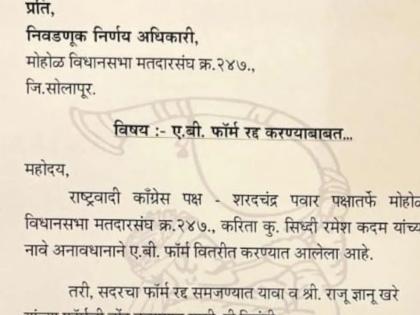 प्रति,
निवडणूक निर्णय अधिकारी,
मोहोळ विधानसभा मतदारसंघ क्र.२४७.,
जि.सोलापूर.
विषय :- ए.बी. फॉर्म रद्द करण्याबाबत...
महोदय,
राष्ट्रवादी काँग्रेस पक्ष - शरदचंद्र पवार पक्षातर्फे मोहोळ
विधानसभा मतदारसंघ क्र.२४७., करिता कु. सिध्दी रमेश कदम यांच्य
नावे अनावधानाने ए.बी. फॉर्म वितरीत करण्यात आलेला आहे.
तरी, सदरचा फॉर्म रद्द समजण्यात यावा व श्री. राजू ज्ञानू खरे